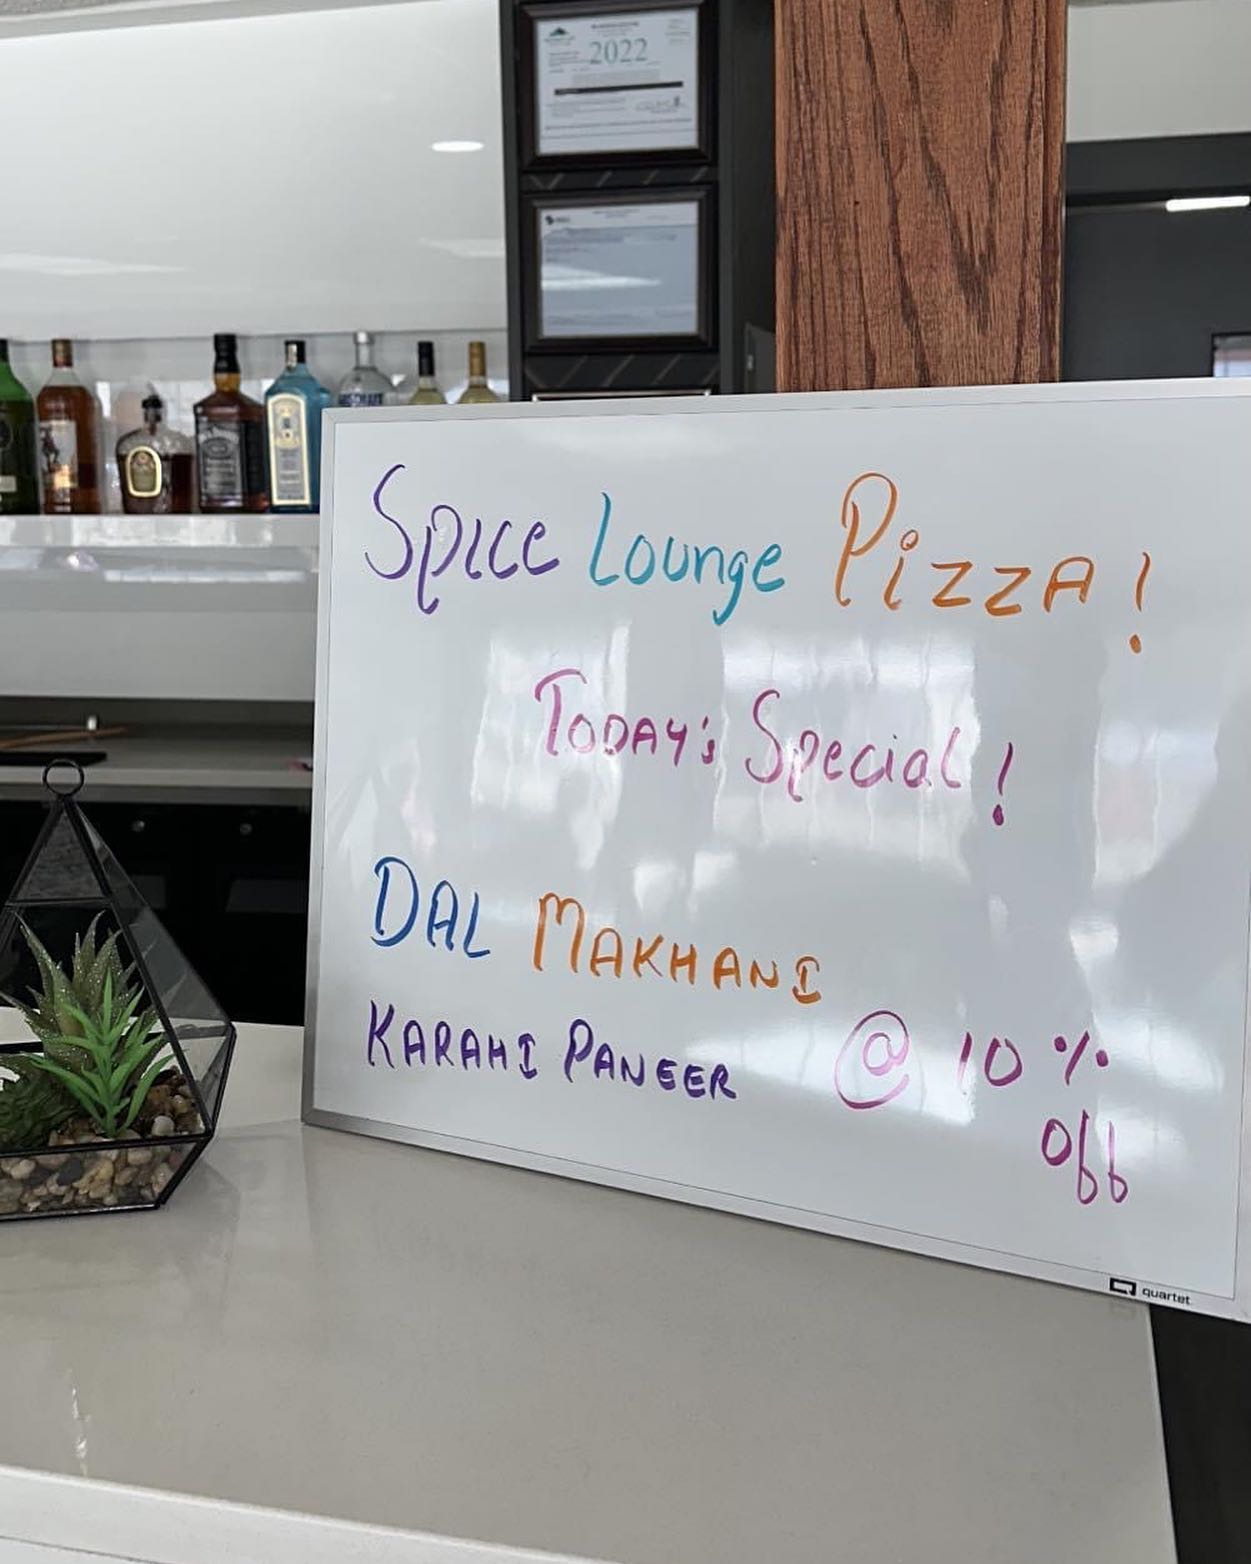 2022
ABSOLUT
Spice Lounge Pizza!
Today's Special!
DAL MAKHANI
KARAHI PANEER @ 10 %
Off
quartet